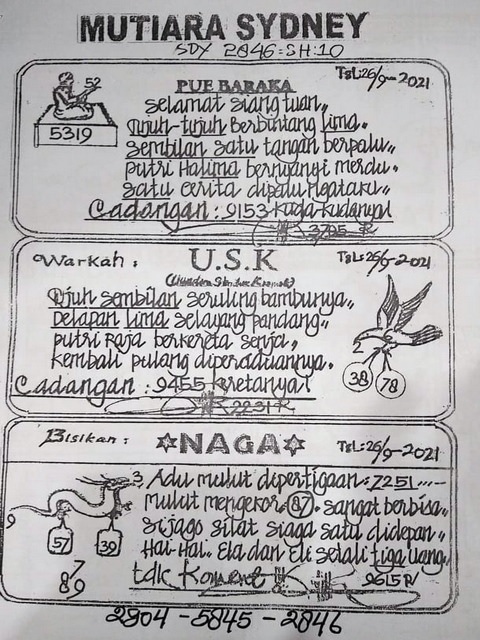 MUTIARA SYDNEY
SDY 2846=SH:10
Tgl:26/9-2021
52
5319
PUE BARAKA
Selamat siang tuan,,
Tujuh-tujuh berbintang lima.
Sembilan satu tangan berpalu,,
Putri Halima bernyanyi merdu.
Satu cerita dipalu
Cadangan : 9153 Kuda-kudanya!
3795 R
Warkah :
U.S.K
Tgl:26/9-2021
Tujuh sembilan seruling bambunya,,
Delapan lima selayang pandang,,
Putri raja berkereta senja,
Kembali pulang diperaduannya.
Cadangan : 9455 Kretanya!
2231 R
38
78
Bisikan :
NAGA
Tgl:26/9-2021
Adu mulut dipertigaan : 7251
Mulut mengekor 87. sangat berbisa,
Sijago silat siaga satu didepan,,
Hai-Hai.. Ela dan Eli setali tiga uang,,
tdk Koment
9615 R
3
9
57
39
7
8 9
2904 - 5845 - 2846